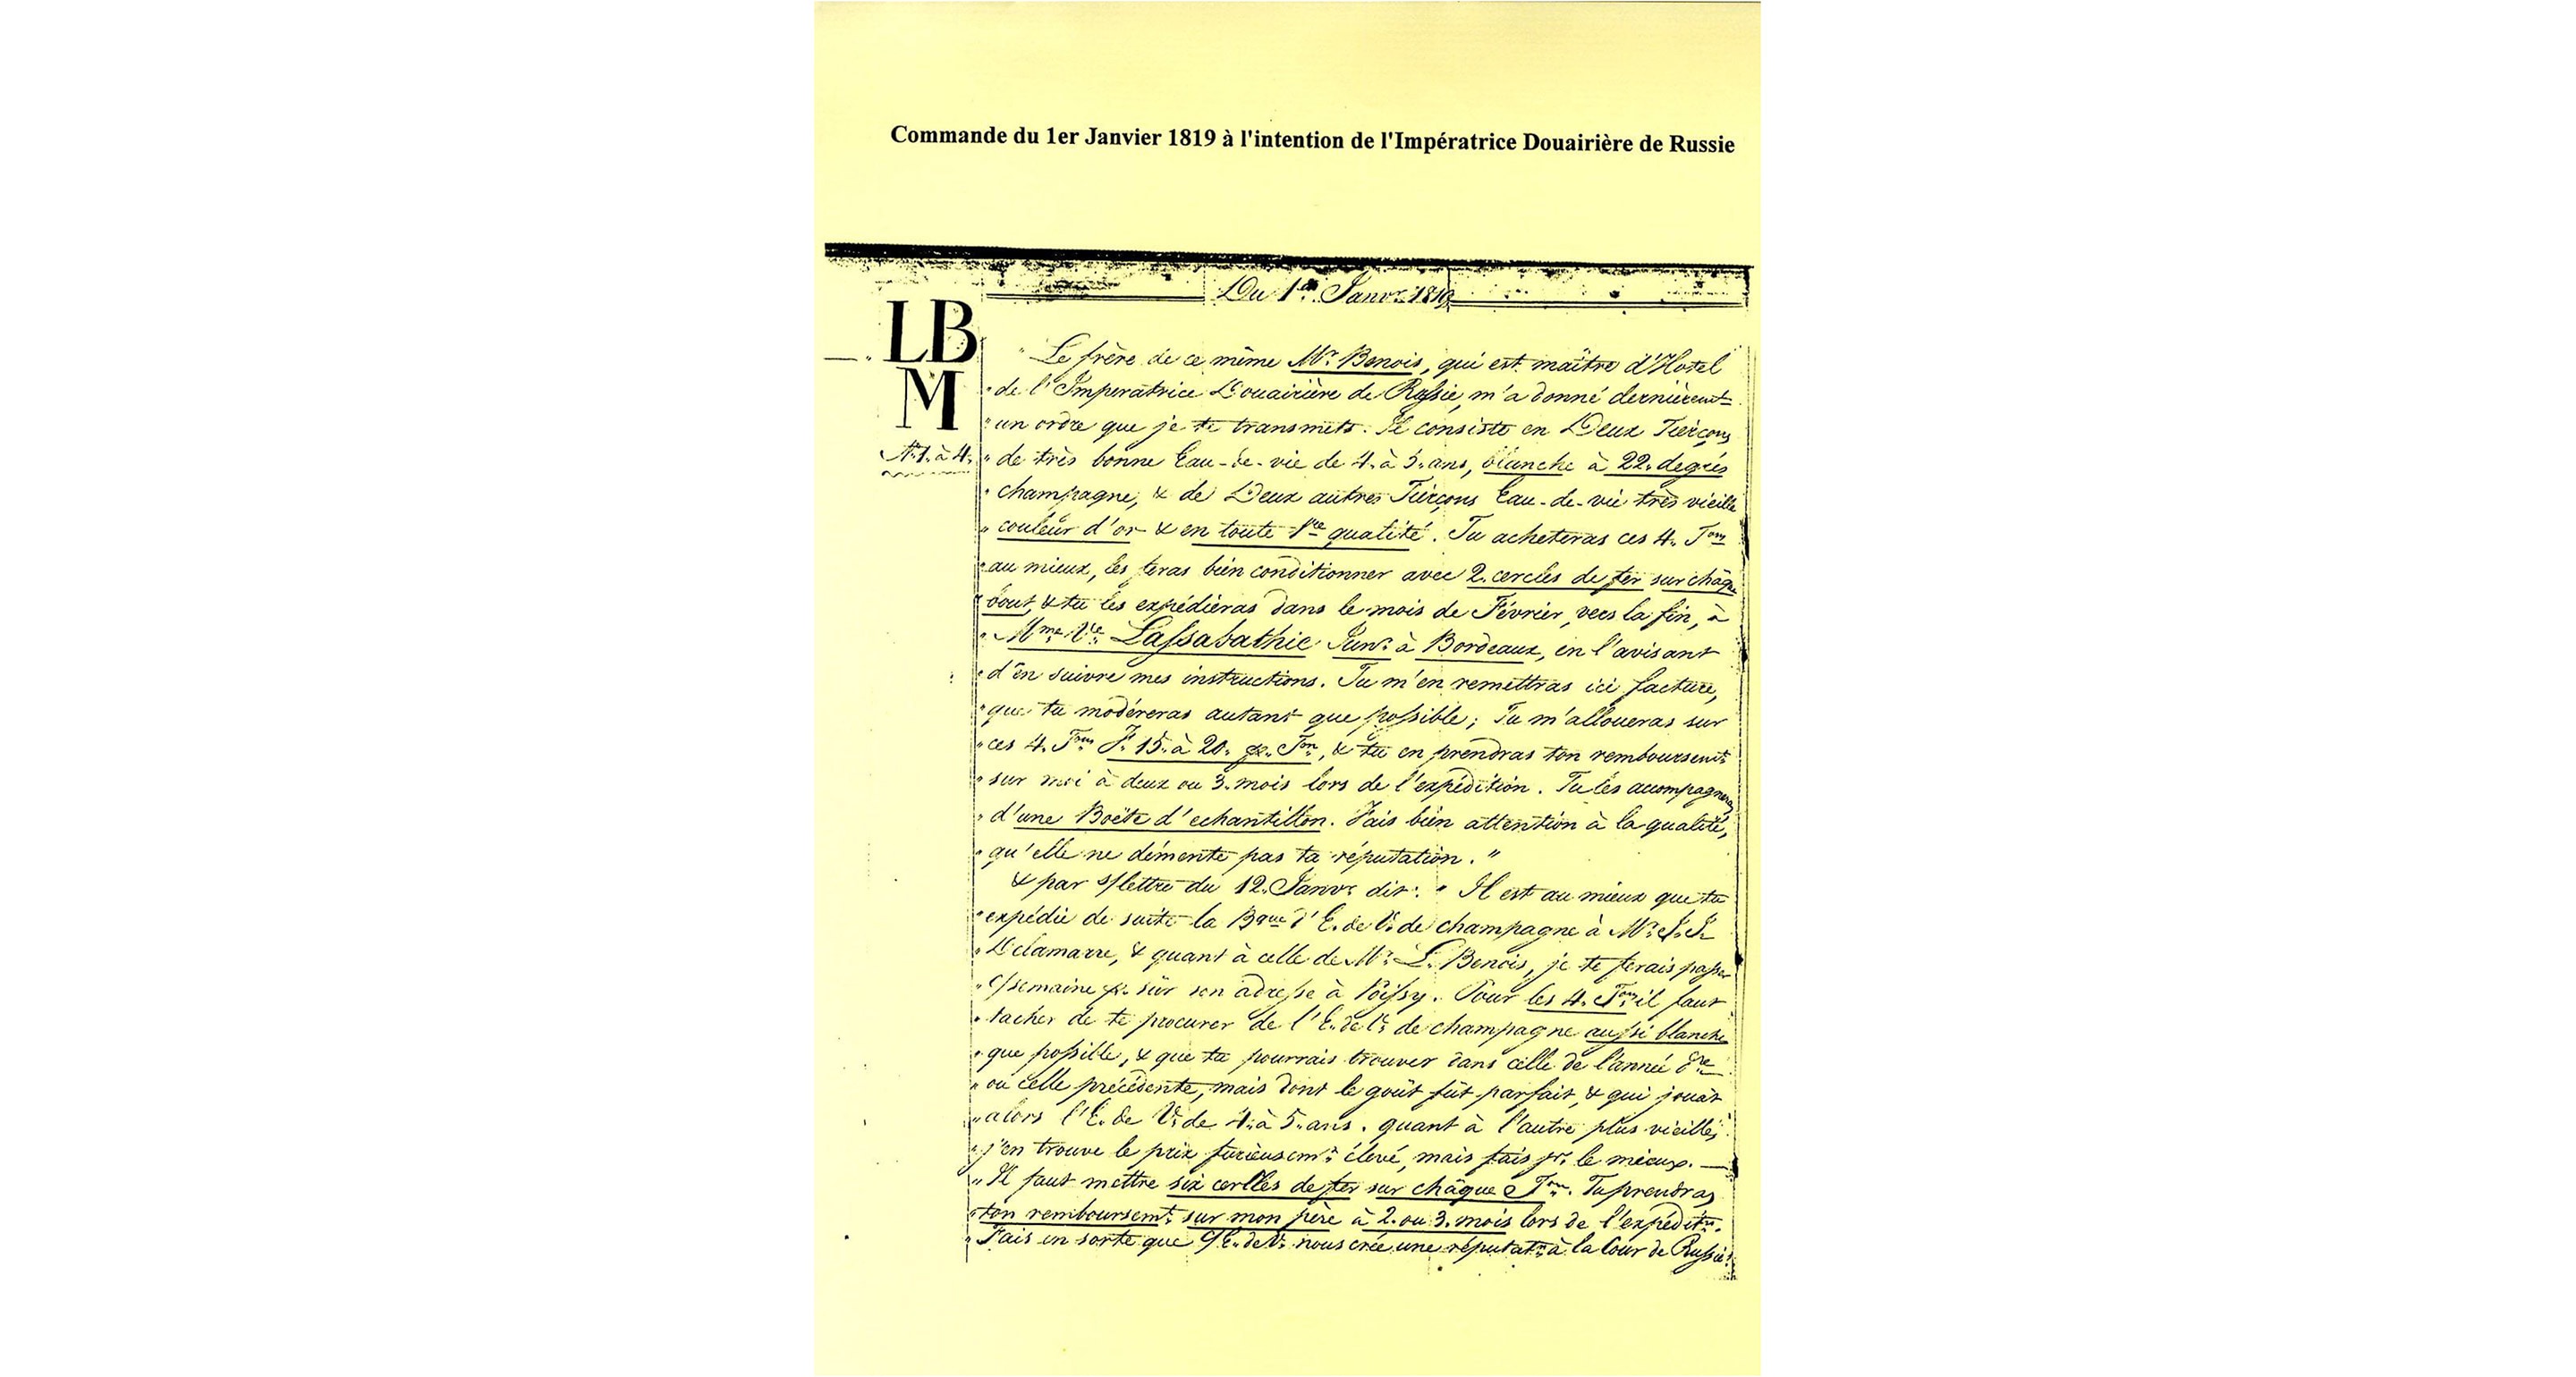 Commande du 1er Janvier 1819 à l'intention de l'Impératrice Douairière de Russie
Du 1er Janvr 1819
LB
M
N.1. à 4.
" Le frère de ce même Mr Benois, qui est maître d'Hotel
" de l'Imperatrice Douairière de Russie, m'a donné dernièremt
" un ordre que je te transmets. Il consiste en Deux Tierçons
" de très bonne Eau-de-vie de 4. à 5. ans, blanche à 22. degrés
" champagne, & de Deux autres Tierçons Eau-de-vie très vieille
" couleur d'or & en toute 1re qualité. Tu acheteras ces 4. Tons
" au mieux, les feras bien conditionner avec 2. cercles de fer sur châque
" bout, & tu les expédieras dans le mois de Février, vers la fin, à
" Mme Ve Lassabathie Junr à Bordeaux, en l'avisant
" d'en suivre mes instructions. Tu m'en remettras ici facture,
" que tu modéreras autant que possible; Tu m'alloueras sur
" ces 4. Tons F. 15. à 20. p. Ton, & tu en prendras ton remboursemt
" sur moi à deux ou 3. mois lors de l'expédition. Tu les accompagneras
" d'une Boëte d'echantillon. Fais bien attention à la qualité,
" qu'elle ne démente pas ta réputation. "
& par s/lettre du 12. Janvr dit: " Il est au mieux que tu
" expédie de suite la Bque d'E. de V. de champagne à Mr
" Delamarre, & quant à celle de Mr L. Benois, je te ferais passer
" c/semaine p. sûr son adresse à Poissy. Pour les 4. Tons il faut
" tacher de te procurer de l'E. de V. de champagne aussi blanche
" que possible, & que tu pourrais trouver dans celle de l'année dre
" ou celle précédente, mais dont le goût fût parfait, & qui jouât
" alors l'E. de V. de 4. à 5. ans. quant à l'autre plus vieille,
" j'en trouve le prix furieusemt élevé, mais fais pr. le mieux. —
" Il faut mettre six cerlles de fer sur châque Ton. Tu prendras
" ton remboursemt sur mon père à 2. ou 3. mois lors de l'expéditn.
" Fais en sorte que c/E. de V. nous crée une réputatn à la Cour de Russie!